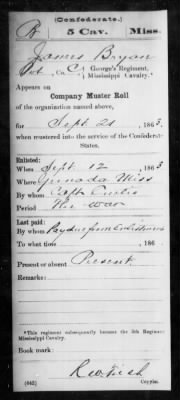 (Confederate.)
B 5 Cav. Miss.
James Bryan
Pvt, Co. C, George's Regiment, Mississippi Cavalry.*
Appears on
Company Muster Roll
of the organization named above,
for Sept 21, 1863.
when mustered into the service of the Confederate
States.
Enlisted:
When Sept. 12, 1863
Where Grenada Miss
By whom Capt Curtis
Period The war
Last paid:
By whom Pay due from Enlistment
To what time , 186
Present or absent Present
Remarks:
*This regiment subsequently became the 5th Regiment
Mississippi Cavalry.
Book mark:
(642) Copyist.